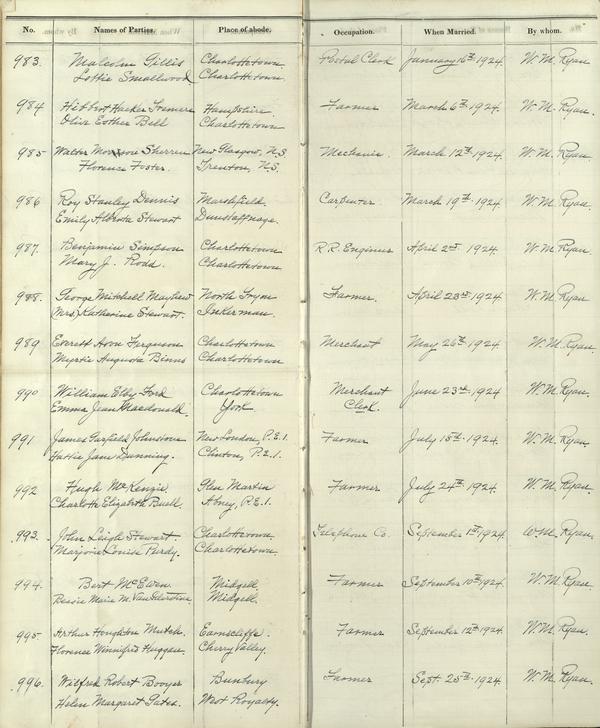 No. Names of Parties. Place of abode. Occupation. When Married. By whom.
983. Malcolm Gillis Charlottetown Postal Clerk January 16th 1924. W. M. Ryan
Lottie Smallwood Charlottetown.
984 Hibbert Hacker Hampshire. Farmer March 6th 1924. W. M. Ryan.
Olive Esther Bell Charlottetown
985 Walter Sherren New Glasgow, N.S. Mechanic. March 12th 1924. W. M. Ryan.
Florence Foster. Trenton, N.S.
986 Roy Stanley Dennis Marshfield. Carpenter March 19th 1924 W. M. Ryan.
Emily Alberta Stewart Dunstaffnage.
987. Benjamin Simpson Charlottetown R.R. Engineer April 2nd 1924. W. M. Ryan
Mary J. Rodd. Charlottetown.
988. George Mitchell Mayhew North Tryon Farmer. April 23rd 1924 W. M. Ryan
(Mrs) Katherine Stewart. Inkerman.
989 Everett Ferguson Charlottetown Merchant May 26th 1924 W. M. Ryan.
Myrtle Augusta Binns Charlottetown
990 William Elby Ford Charlottetown Merchant June 23rd 1924 W. M. Ryan.
Emma Jean Macdonald. York. Clerk.
991 James Garfield Johnstone New London, P.E.I. Farmer July 15th 1924. W. M. Ryan.
Hattie Jane Dunning. Clinton, P.E.I.
992 Hugh McKenzie Glen Martin Farmer July 24th 1924. W. M. Ryan
Charlotte Elizabeth Buell. Abney, P.E.I.
993. John Leigh Stewart. Charlottetown Telephone Co. September 1st 1924. W. M. Ryan.
Marjorie Louise Purdy. Charlottetown.
994. Bert McEwen. Midgell. Farmer September 10th 1924 W. M. Ryan.
Bessie Marie M. Midgell.
995. Arthur Houghton Mutch. Earnscliffe. Farmer September 12th 1924. W. M. Ryan.
Florence Winnifred Huggan. Cherry Valley.
996. Wilfred Robert Bovyer Bunbury Farmer Sept. 25th 1924. W. M. Ryan.
Helen Margaret West Royalty.